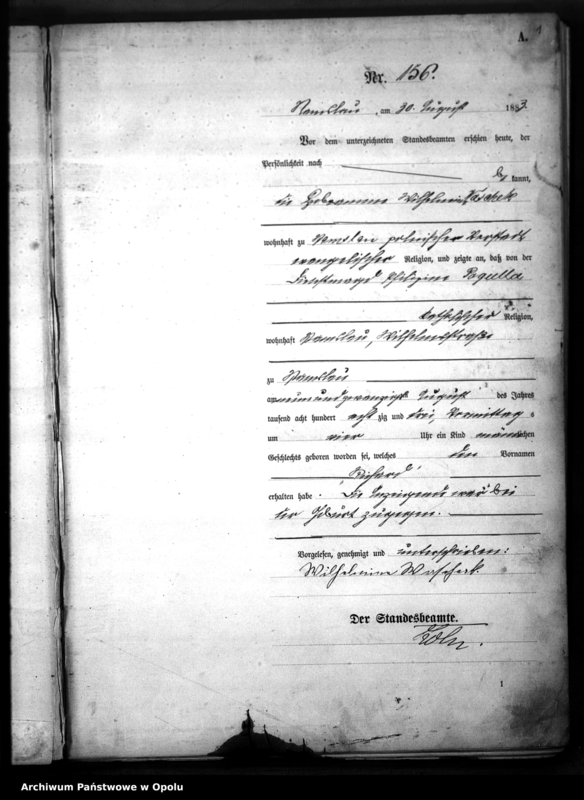 A. 1
Nr. 156.
Namslau, am 30. August 1883.
Vor dem unterzeichneten Standesbeamten erschien heute, der
Persönlichkeit nach
be kannt,
die Hebamme Wilhelmine
wohnhaft zu Namslau polnischer Vorstadt
evangelischer Religion, und zeigte an, daß von der
Dienstmagd Philipine Pogulla
katholischer Religion,
wohnhaft Namslau, Wilhelmstraße
zu Namslau
am neunundzwanzigsten August des Jahres
tausend acht hundert acht zig und drei, Vormittags
um vier Uhr ein Kind männlichen
Geschlechts geboren worden sei, welches den Vornamen
Richard
erhalten habe. Die Anzeigende war bei
der Geburt zugegen.
Vorgelesen, genehmigt und unterschrieben:
Wilhelmine
Der Standesbeamte.
1
Archiwum Państwowe w Opolu